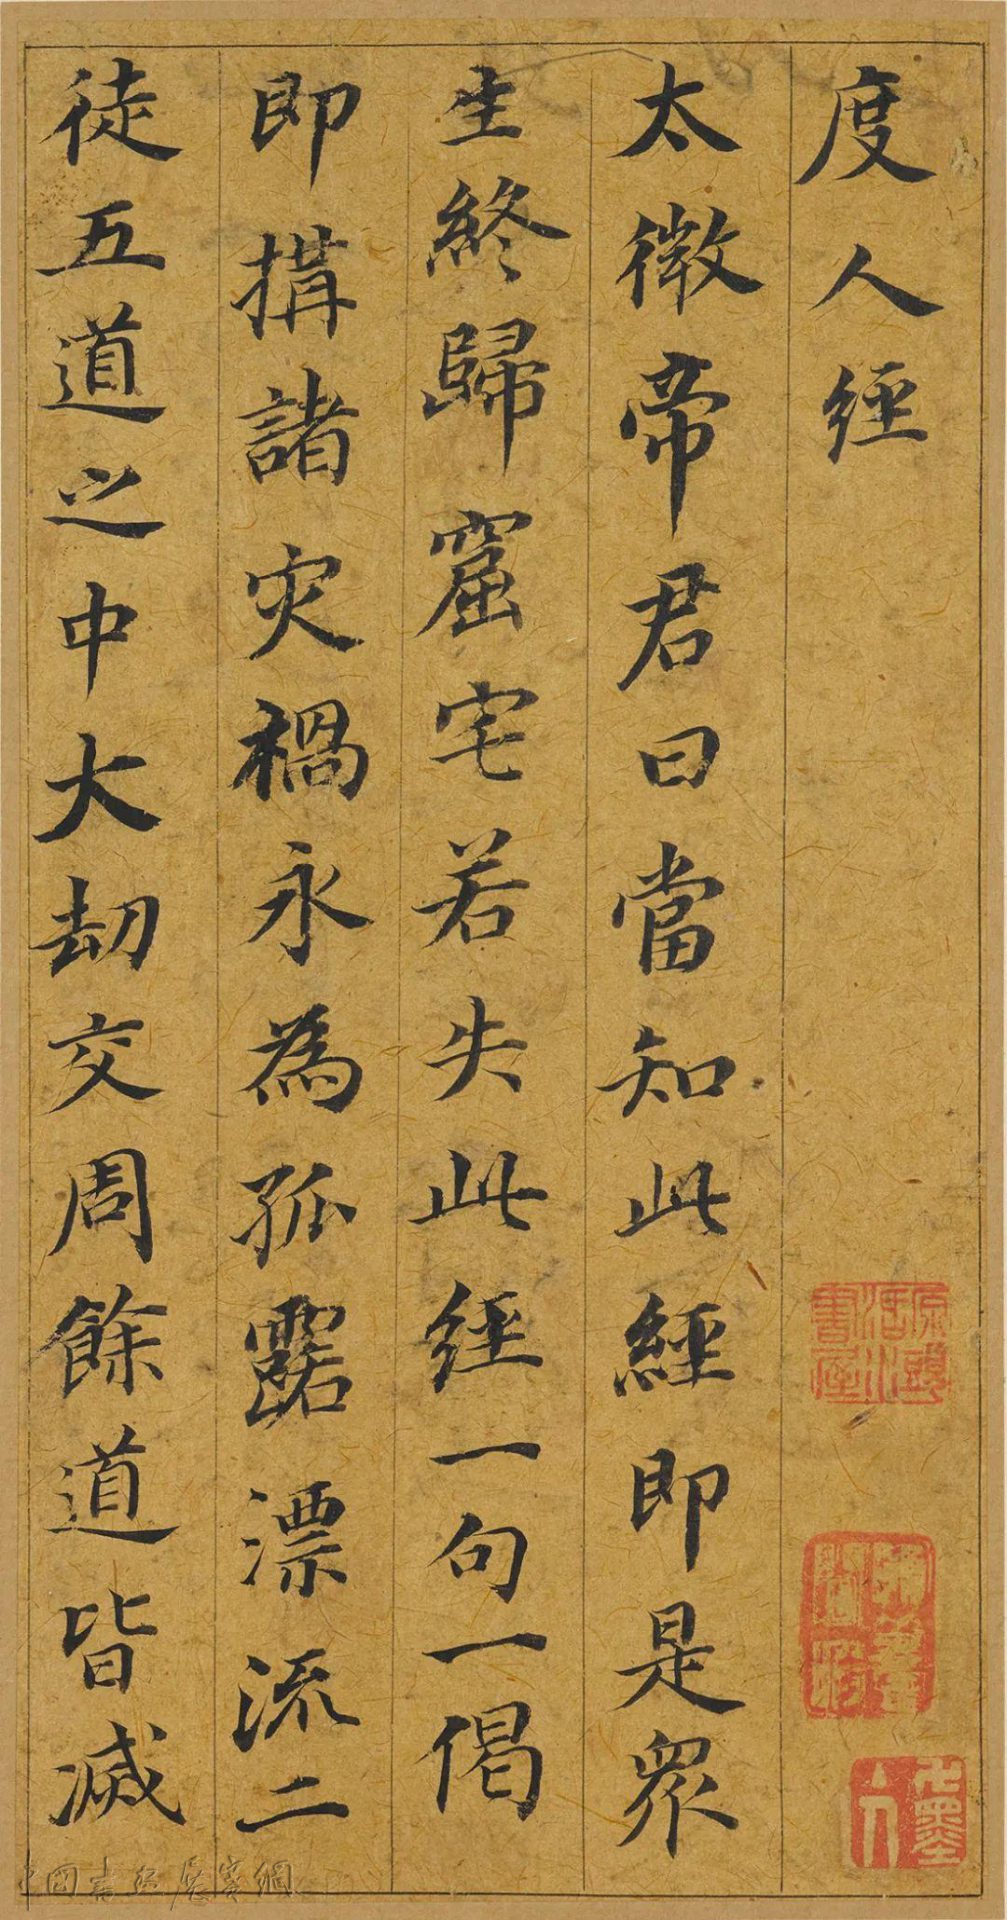 度人経
太微帝君曰當知此經即是眾
生終歸窟宅若失此經一句一偈
即搆諸灾禍永為孤露漂流二
徒五道之中大劫交周餘道皆滅